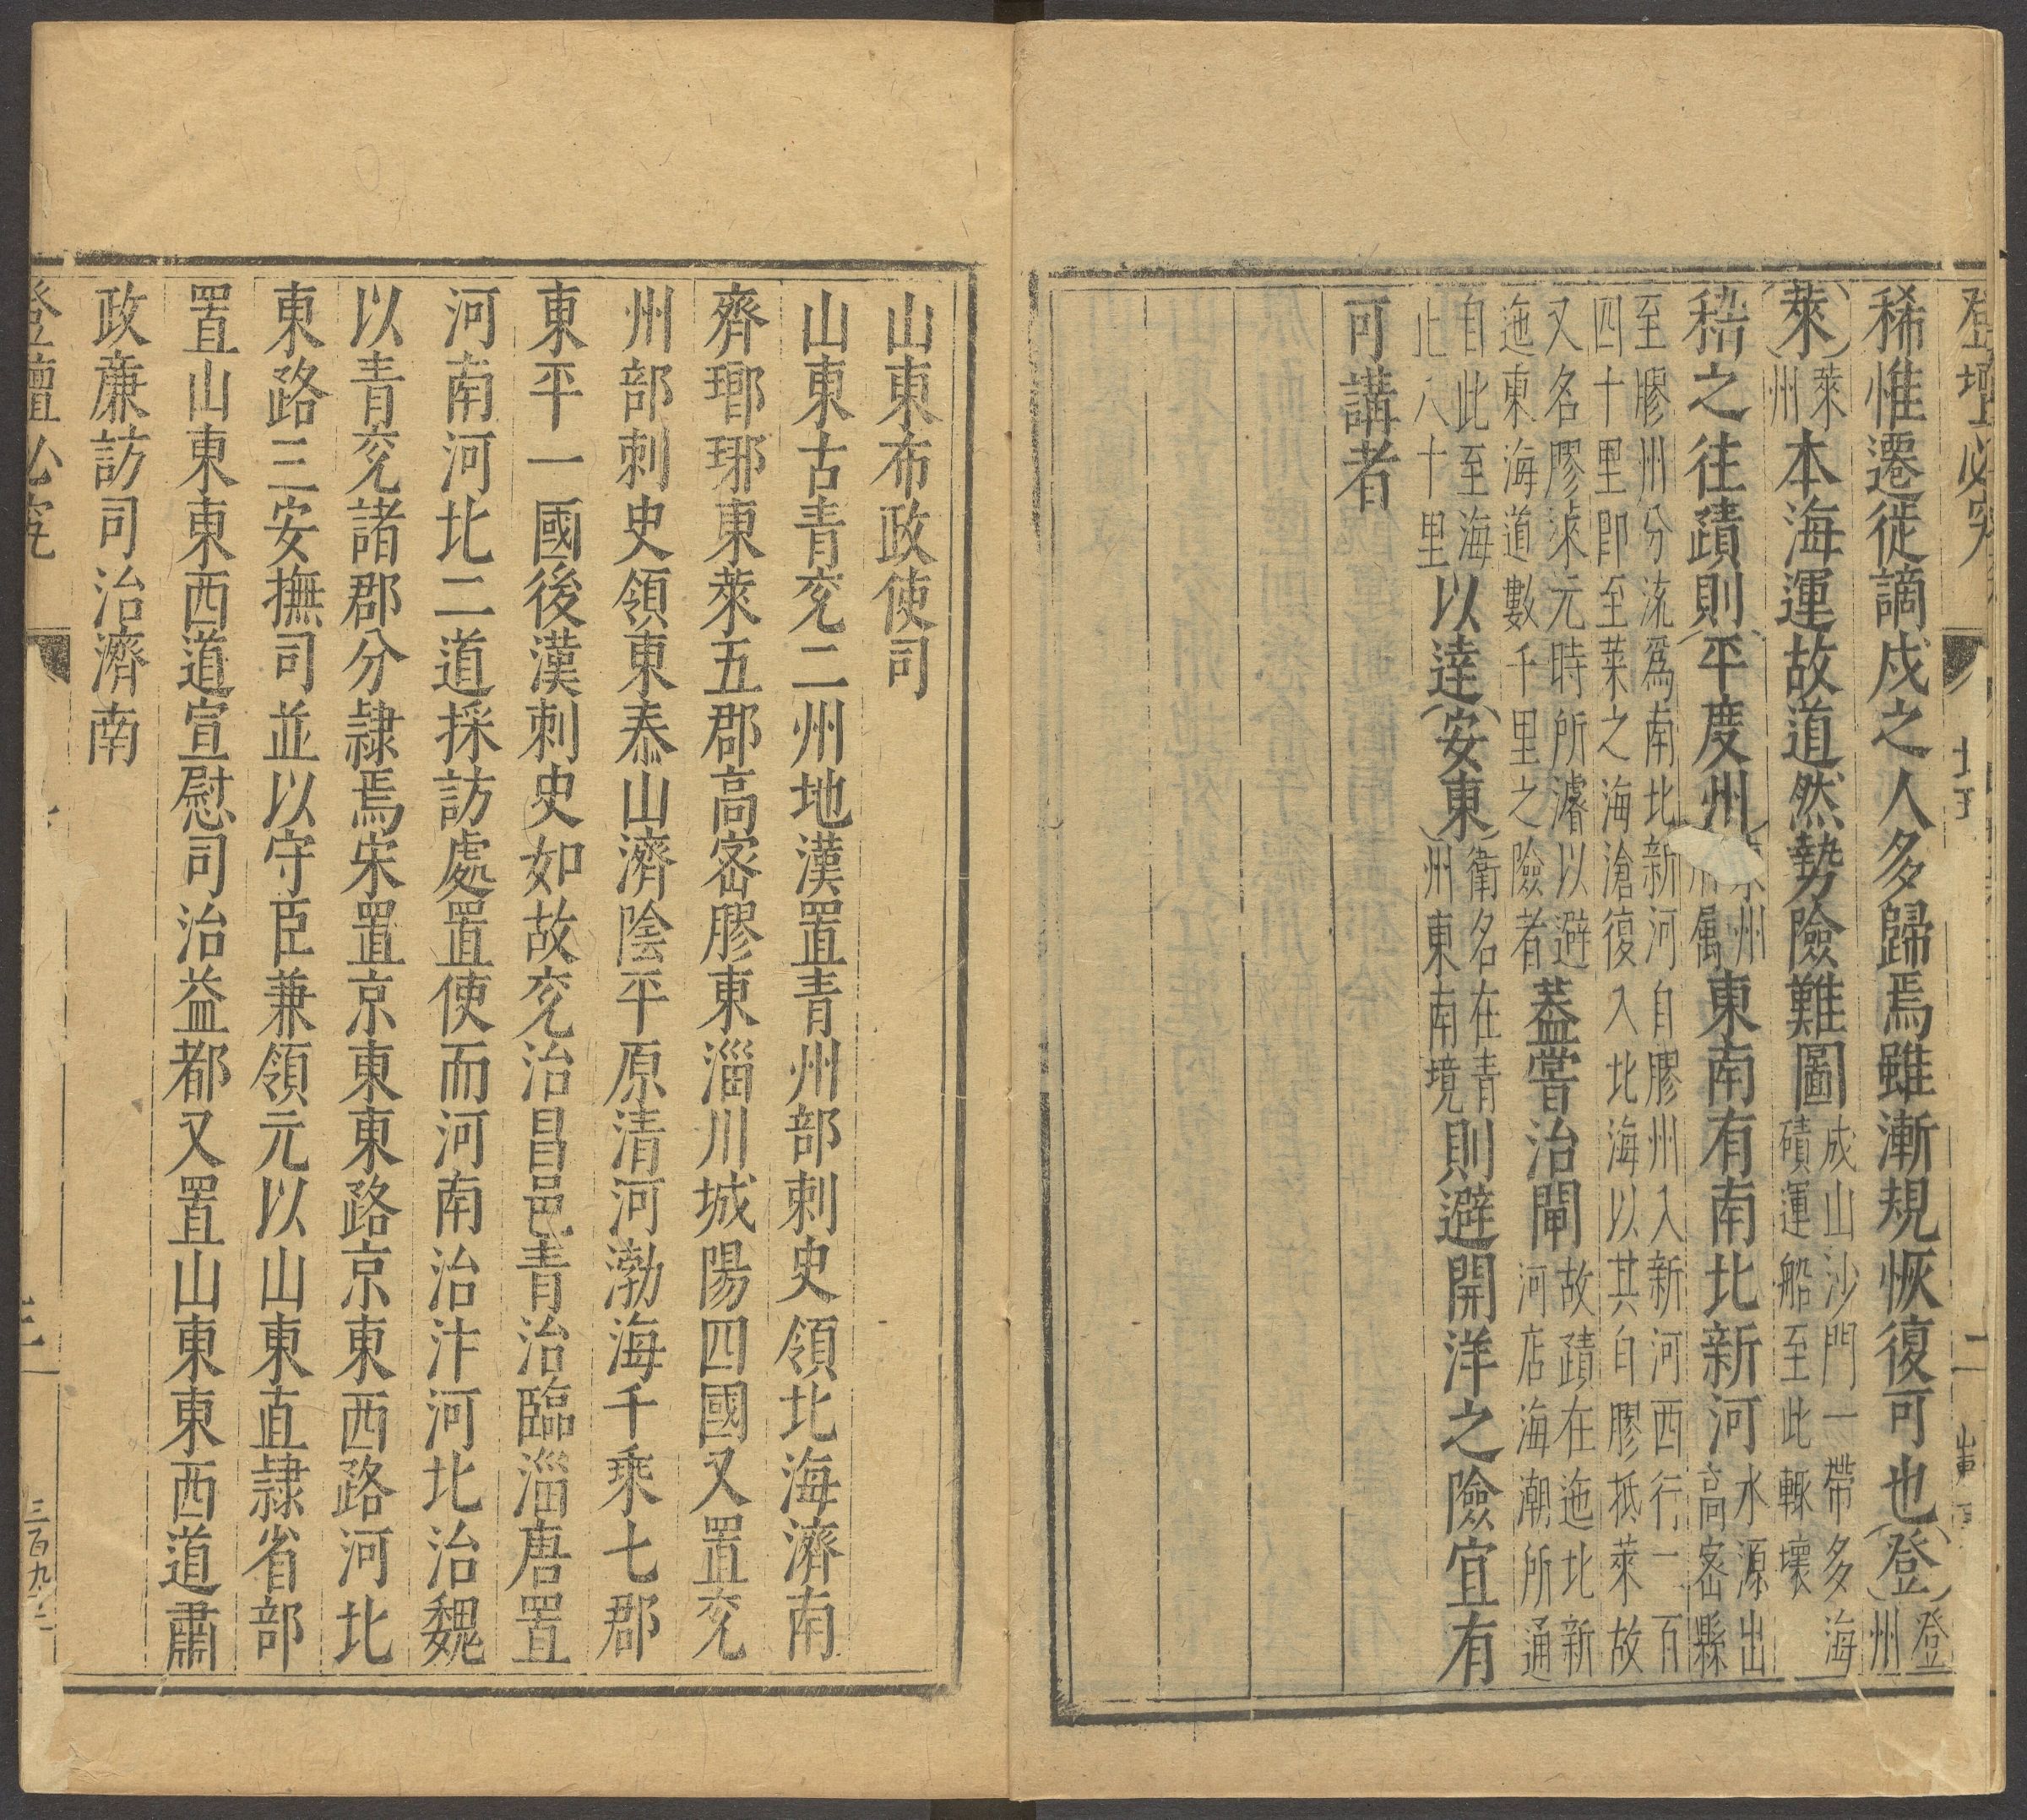 登壇必究 二
稀惟遷徙謫戍之人多歸焉雖漸規恢復可也(登)登州
(萊)萊州本海運故道然勢險難圖成山沙門一帶多海磧運船至此輒壞
稽之往蹟則(平度州)州屬東南有南北新河水源出高密縣
至膠州分流爲南北新河自膠州入新河西行一百四十里即至萊之海滄復入北海以其自膠抵萊故
又名膠淶元時所濬以避迤東海道數千里之險者蓋嘗治閘故蹟在迤北新河店海潮所通
自此至海止八十里以達(安東)衛名在青州東南境則避開洋之險宜有
可講者
山東布政使司
山東古青兖二州地漢置青州部刺史領北海濟南
齊瑯琊東萊五郡高密膠東淄川城陽四國又置兖
州部刺史領東泰山濟陰平原清河渤海千乘七郡
東平一國後漢刺史如故兖治昌邑青治臨淄唐置
河南河北二道採訪處置使而河南治汴河北治魏
以青兖諸郡分隷焉宋置京東東路京東西路河北
東路三安撫司並以守臣兼領元以山東直隷省部
置山東東西道宣慰司治益都又置山東東西道肅
政廉訪司治濟南
登壇必究 三 三百九十二